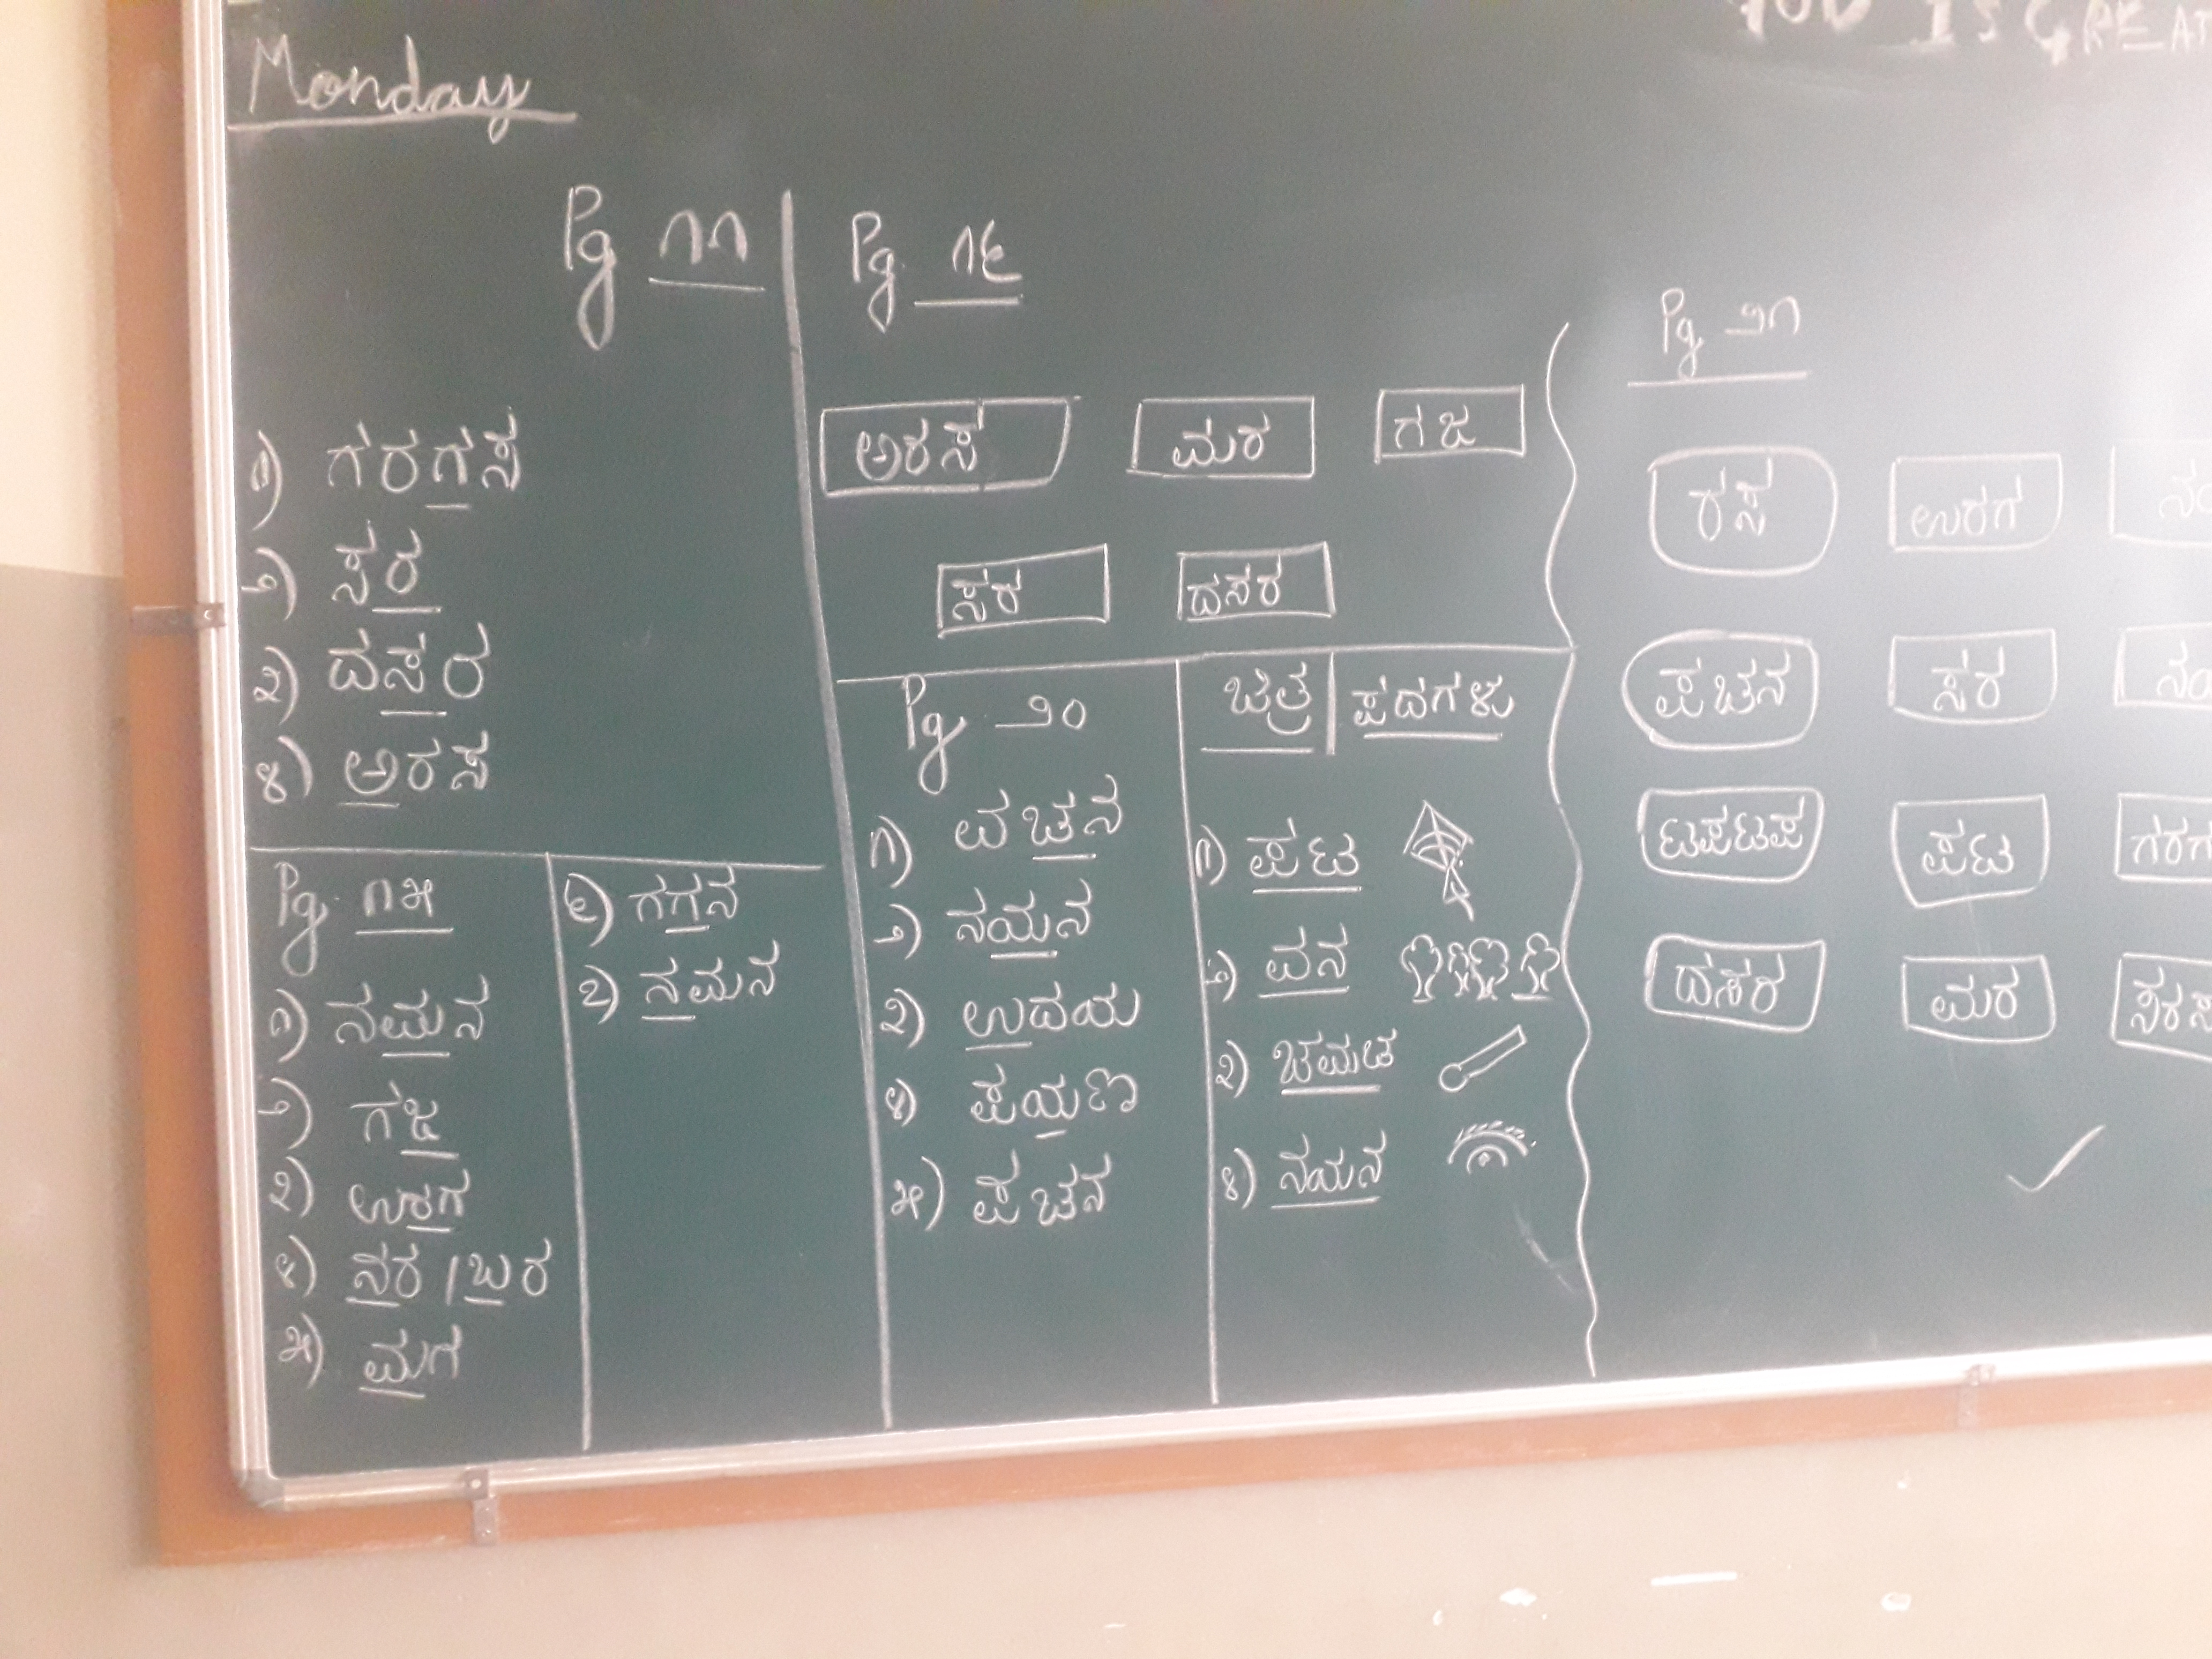 IS GREAT
Monday
Pg ೧೧
೧) ಗರಗಸ
೨) ಸರ
೩) ದಸರ
೪) ಅರಸ
Pg ೧೫
೧) ನಮನ
೨) ಗಜ
೩) ಉರಗ
೪) ನರ / ಬರ
೫) ಮಗ
೬) ಗಗನ
೭) ನಮನ
Pg ೧೯
ಅರಸ ಮರ ಗಜ
ಸರ ದಸರ
Pg ೨೦
೧) ವಚನ
೨) ನಯನ
೩) ಉದಯ
೪) ಪಯಣ
೫) ಪಚನ
ಚಿತ್ರ | ಪದಗಳು
೧) ಪಟ
೨) ವನ
೩) ಚಮಚ
೪) ನಯನ
Pg ೨೧
ರಸ ಉರಗ
ಪಚನ ಸರ
ಟಪಟಪ ಪಟ ಗರಗ
ದಸರ ಮರ